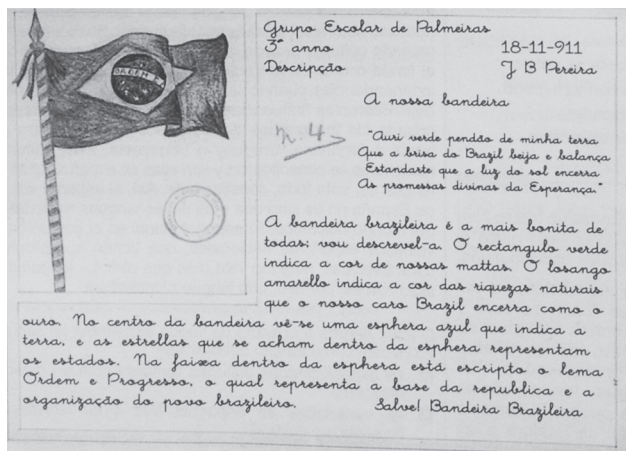 Grupo Escolar de Palmeiras
3º anno 18-11-911
Descripção J B Pereira
A nossa bandeira
n. 4
"Auri verde pendão de minha terra
Que a brisa do Brazil beija e balança
Estandarte que a luz do sol encerra
As promessas divinas da Esperança."
A bandeira brazileira é a mais bonita de
todas; vou descrevel-a. O rectangulo verde
indica a cor de nossas mattas. O losango
amarello indica a cor das riquezas naturais
que o nosso caro Brazil encerra como o
ouro. No centro da bandeira vê-se uma esphera azul que indica a
terra, e as estrellas que se acham dentro da esphera representam
os estados. Na faixa dentro da esphera está escripto o lema
Ordem e Progresso, o qual representa a base da republica e a
organização do povo brazileiro. Salve! Bandeira Brazileira
ORDEM